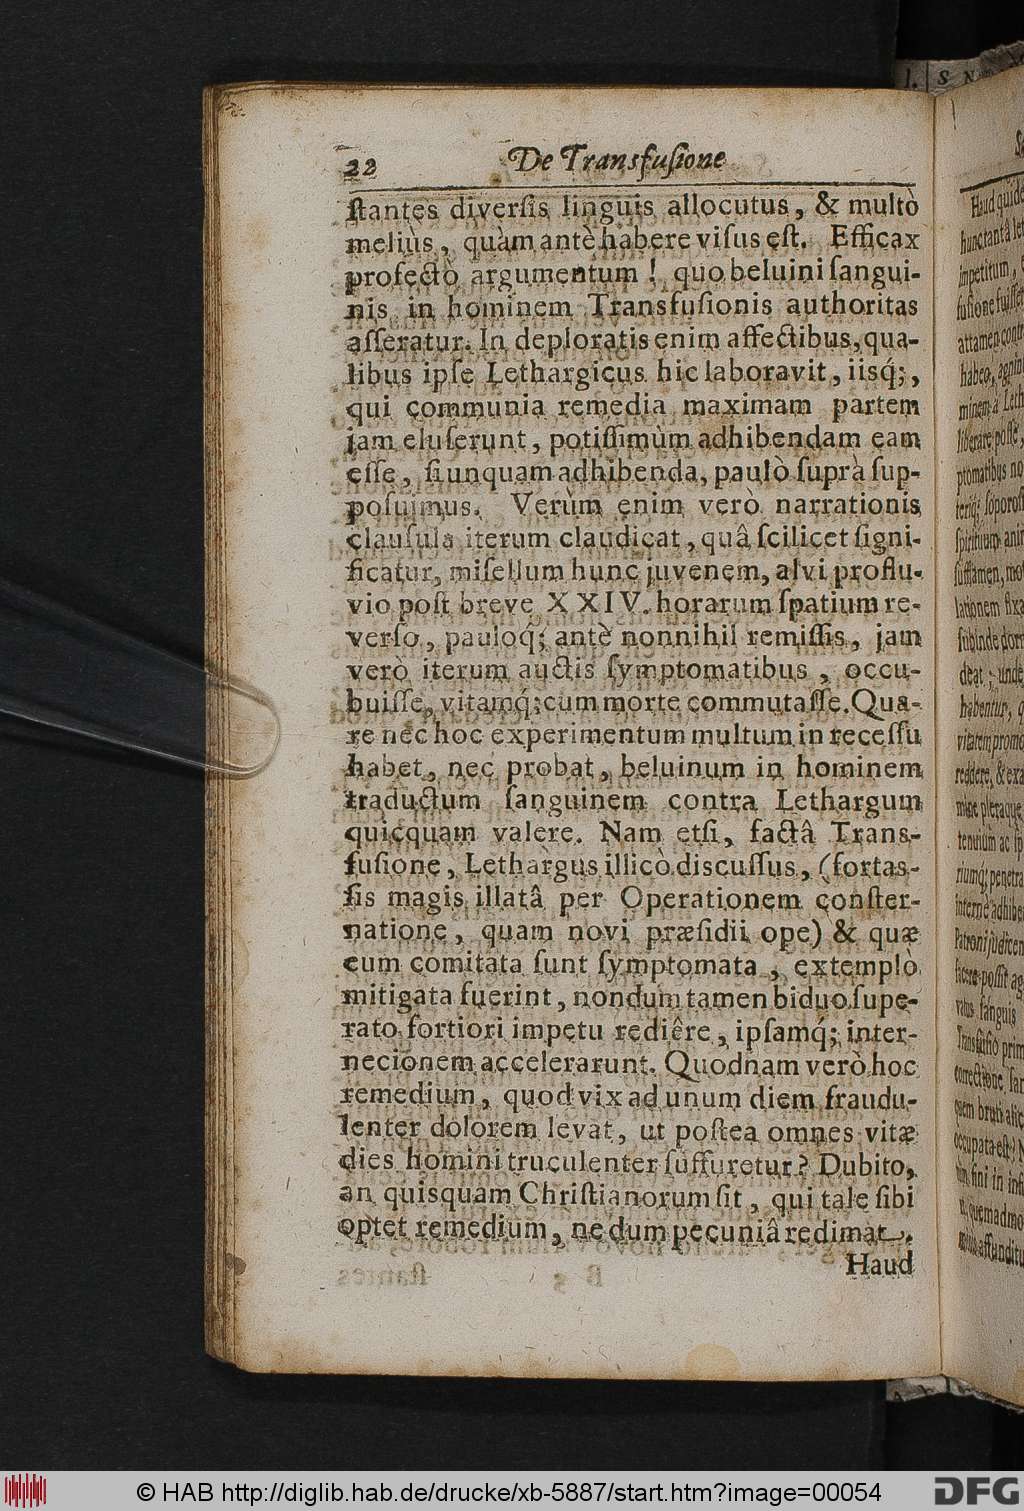 22 De Transfuſione
ſtantes diverſis linguis allocutus, & multò
meliùs, quàm antè habere viſus eſt. Efficax
profectò argumentum! quo beluini ſangui-
nis in hominem Transfuſionis authoritas
aſſeratur. In deploratis enim affectibus, qua-
libus ipſe Lethargicus hic laboravit, iisq́;,
qui communia remedia maximam partem
jam eluſerunt, potiſſimùm adhibendam eam
eſſe, ſi unquam adhibenda, paulò ſuprà ſup-
poſuimus. Verùm enim verò narrationis
clauſula iterum claudicat, quâ ſcilicet ſigni-
ficatur, miſellum hunc juvenem, alvi proflu-
vio poſt breve XXIV. horarum ſpatium re-
verſo, pauloq́; antè nonnihil remiſſis, jam
verò iterum auctis ſymptomatibus, occu-
buiſſe, vitamq́; cum morte commutaſſe. Qua-
re nec hoc experimentum multum in receſſu
habet, nec probat, beluinum in hominem
traductum ſanguinem contra Lethargum
quicquam valere. Nam etſi, factâ Trans-
fuſione, Lethargus illicò discuſſus, (fortas-
ſis magis illatâ per Operationem conſter-
natione, quam novi præſidii ope) & quæ
cum comitata ſunt ſymptomata, extemplò
mitigata fuerint, nondum tamen biduo ſupe-
rato fortiori impetu rediêre, ipſamq́; inter-
necionem accelerarunt. Quodnam verò hoc
remedium, quod vix ad unum diem fraudu-
lenter dolorem levat, ut poſtea omnes vitæ
dies homini truculenter ſuffuretur? Dubito,
an quisquam Chriſtianorum ſit, qui tale ſibi
optet remedium, ne dum pecuniâ redimat.
Haud
© HAB http://diglib.hab.de/drucke/xb-5887/start.htm?image=00054
DFG